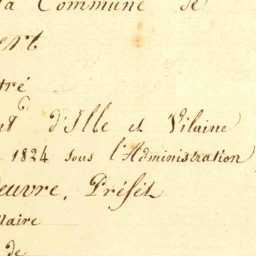 la Commune de
ert
tré
nt d'Ille et Vilaine
1824 sous l'Administration
euvre, Préfet
Maire
de